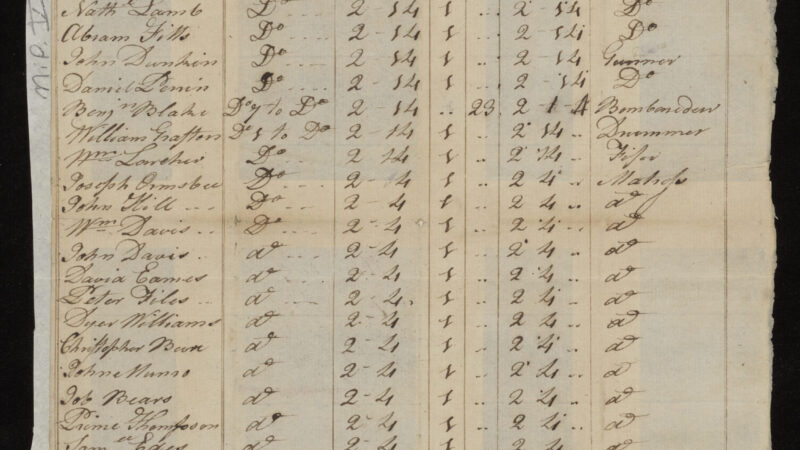 Nath.l Lamb Do 2 14 1 .. 2 14 Do
Abram Fills Do 2 14 1 .. 2 14 Do
John Dunkin Do 2 14 1 .. 2 14 Gunner
Daniel Penin Do 2 14 1 .. 2 14 Do
Benj.n Blake Do 7 to Do 2 14 .. 23 2 1 4 Bombardeer
William Grafton Do 1 to Do 2 14 1 .. 2 14 .. Drummer
Wm Larcher Do 2 14 1 .. 2 14 .. Fifer
Joseph Ormsbee Do 2 4 1 .. 2 4 .. Matross
John Hill Do 2 4 1 .. 2 4 .. do
Wm Davis Do 2 4 1 .. 2 4 .. do
John Davis do 2 4 1 .. 2 4 .. do
David Eames do 2 4 1 .. 2 4 .. do
Peter Files do 2 4 1 .. 2 4 .. do
Dyer Williams do 2 4 1 .. 2 4 .. do
Christopher do 2 4 1 .. 2 4 .. do
John Munro do 2 4 1 .. 2 4 .. do
Job Bears do 2 4 1 .. 2 4 .. do
Prime Thompson do 2 4 1 .. 2 4 .. do
Sam.ll Edes do 2 4 1 .. 2 4 do